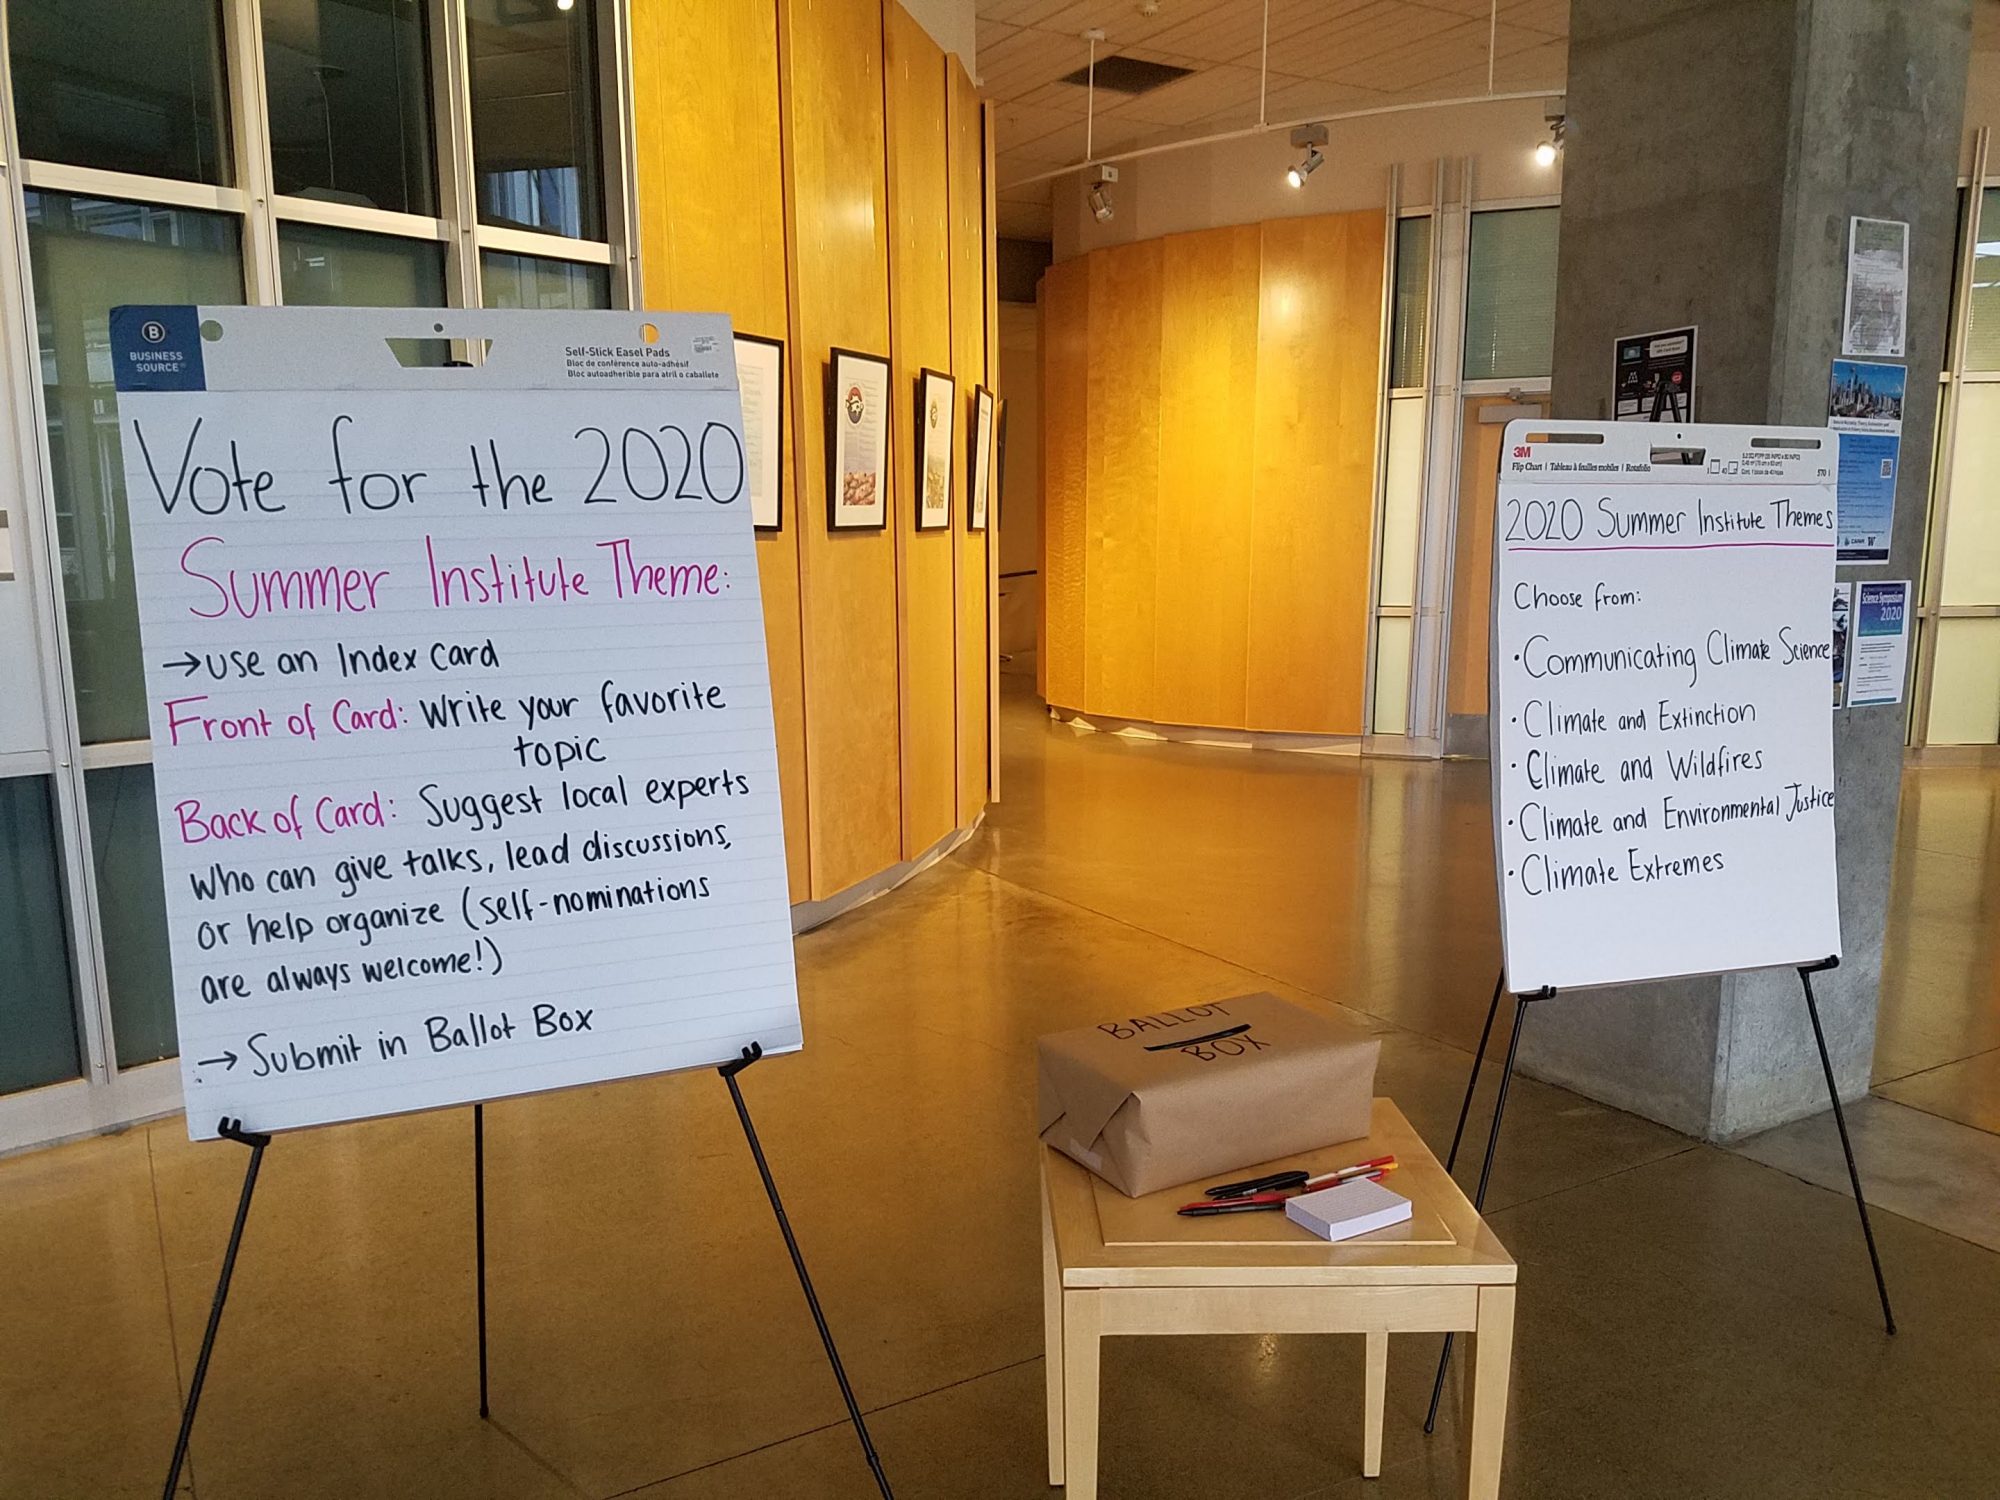 B
BUSINESS
SOURCE
Self-Stick Easel Pads
Bloc de conférence auto-adhésif
Bloc autoadherible para atril o caballete
Vote for the 2020
Summer Institute Theme:
→ use an Index card
Front of Card: Write your favorite
topic
Back of Card: Suggest local experts
who can give talks, lead discussions,
or help organize (self-nominations
are always welcome!)
→ Submit in Ballot Box
BALLOT
BOX
3M
Flip Chart | Tableau à feuilles mobiles | Rotafolio
570
2020 Summer Institute Themes
Choose from:
• Communicating Climate Science
• Climate and Extinction
• Climate and Wildfires
• Climate and Environmental Justice
• Climate Extremes
Science Symposium
2020
W